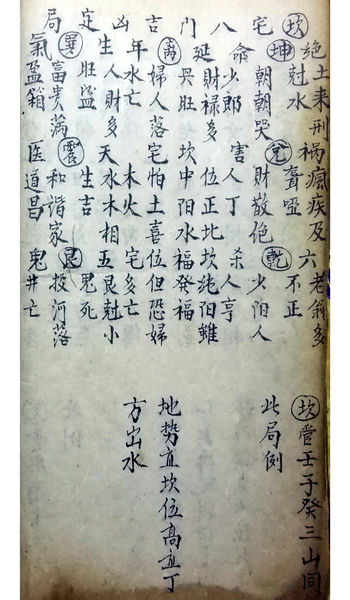 坎宅八门吉凶定局
絕土来刑禍瘋疾及六老翁多
坤尅水兌聾啞不正
朝朝哭財散絶乾少阳人
命少郎害人丁杀人亨
延財禄多位正北坎純阳雖
离興旺坎中阳水福發福
婦人落宅怕土喜位但恐婦
年水亡木火宅多亡
生人財多天水木相五艮尅小
旺益生吉鬼死
巽富贵满震和谐家艮投河落
氣盈箱医道昌鬼井亡
坎管壬子癸三山同
此局例
地势宜坎位高宜丁
方出水